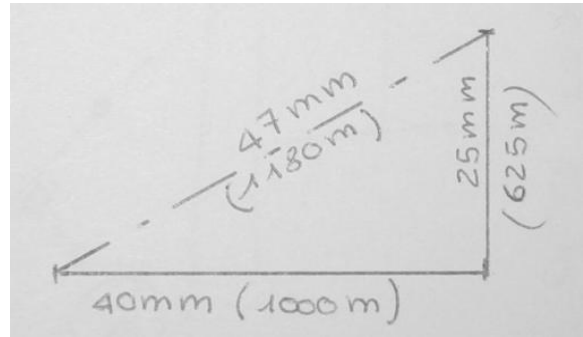 47mm
(1180m)
25mm
(625m)
40mm (1000m)